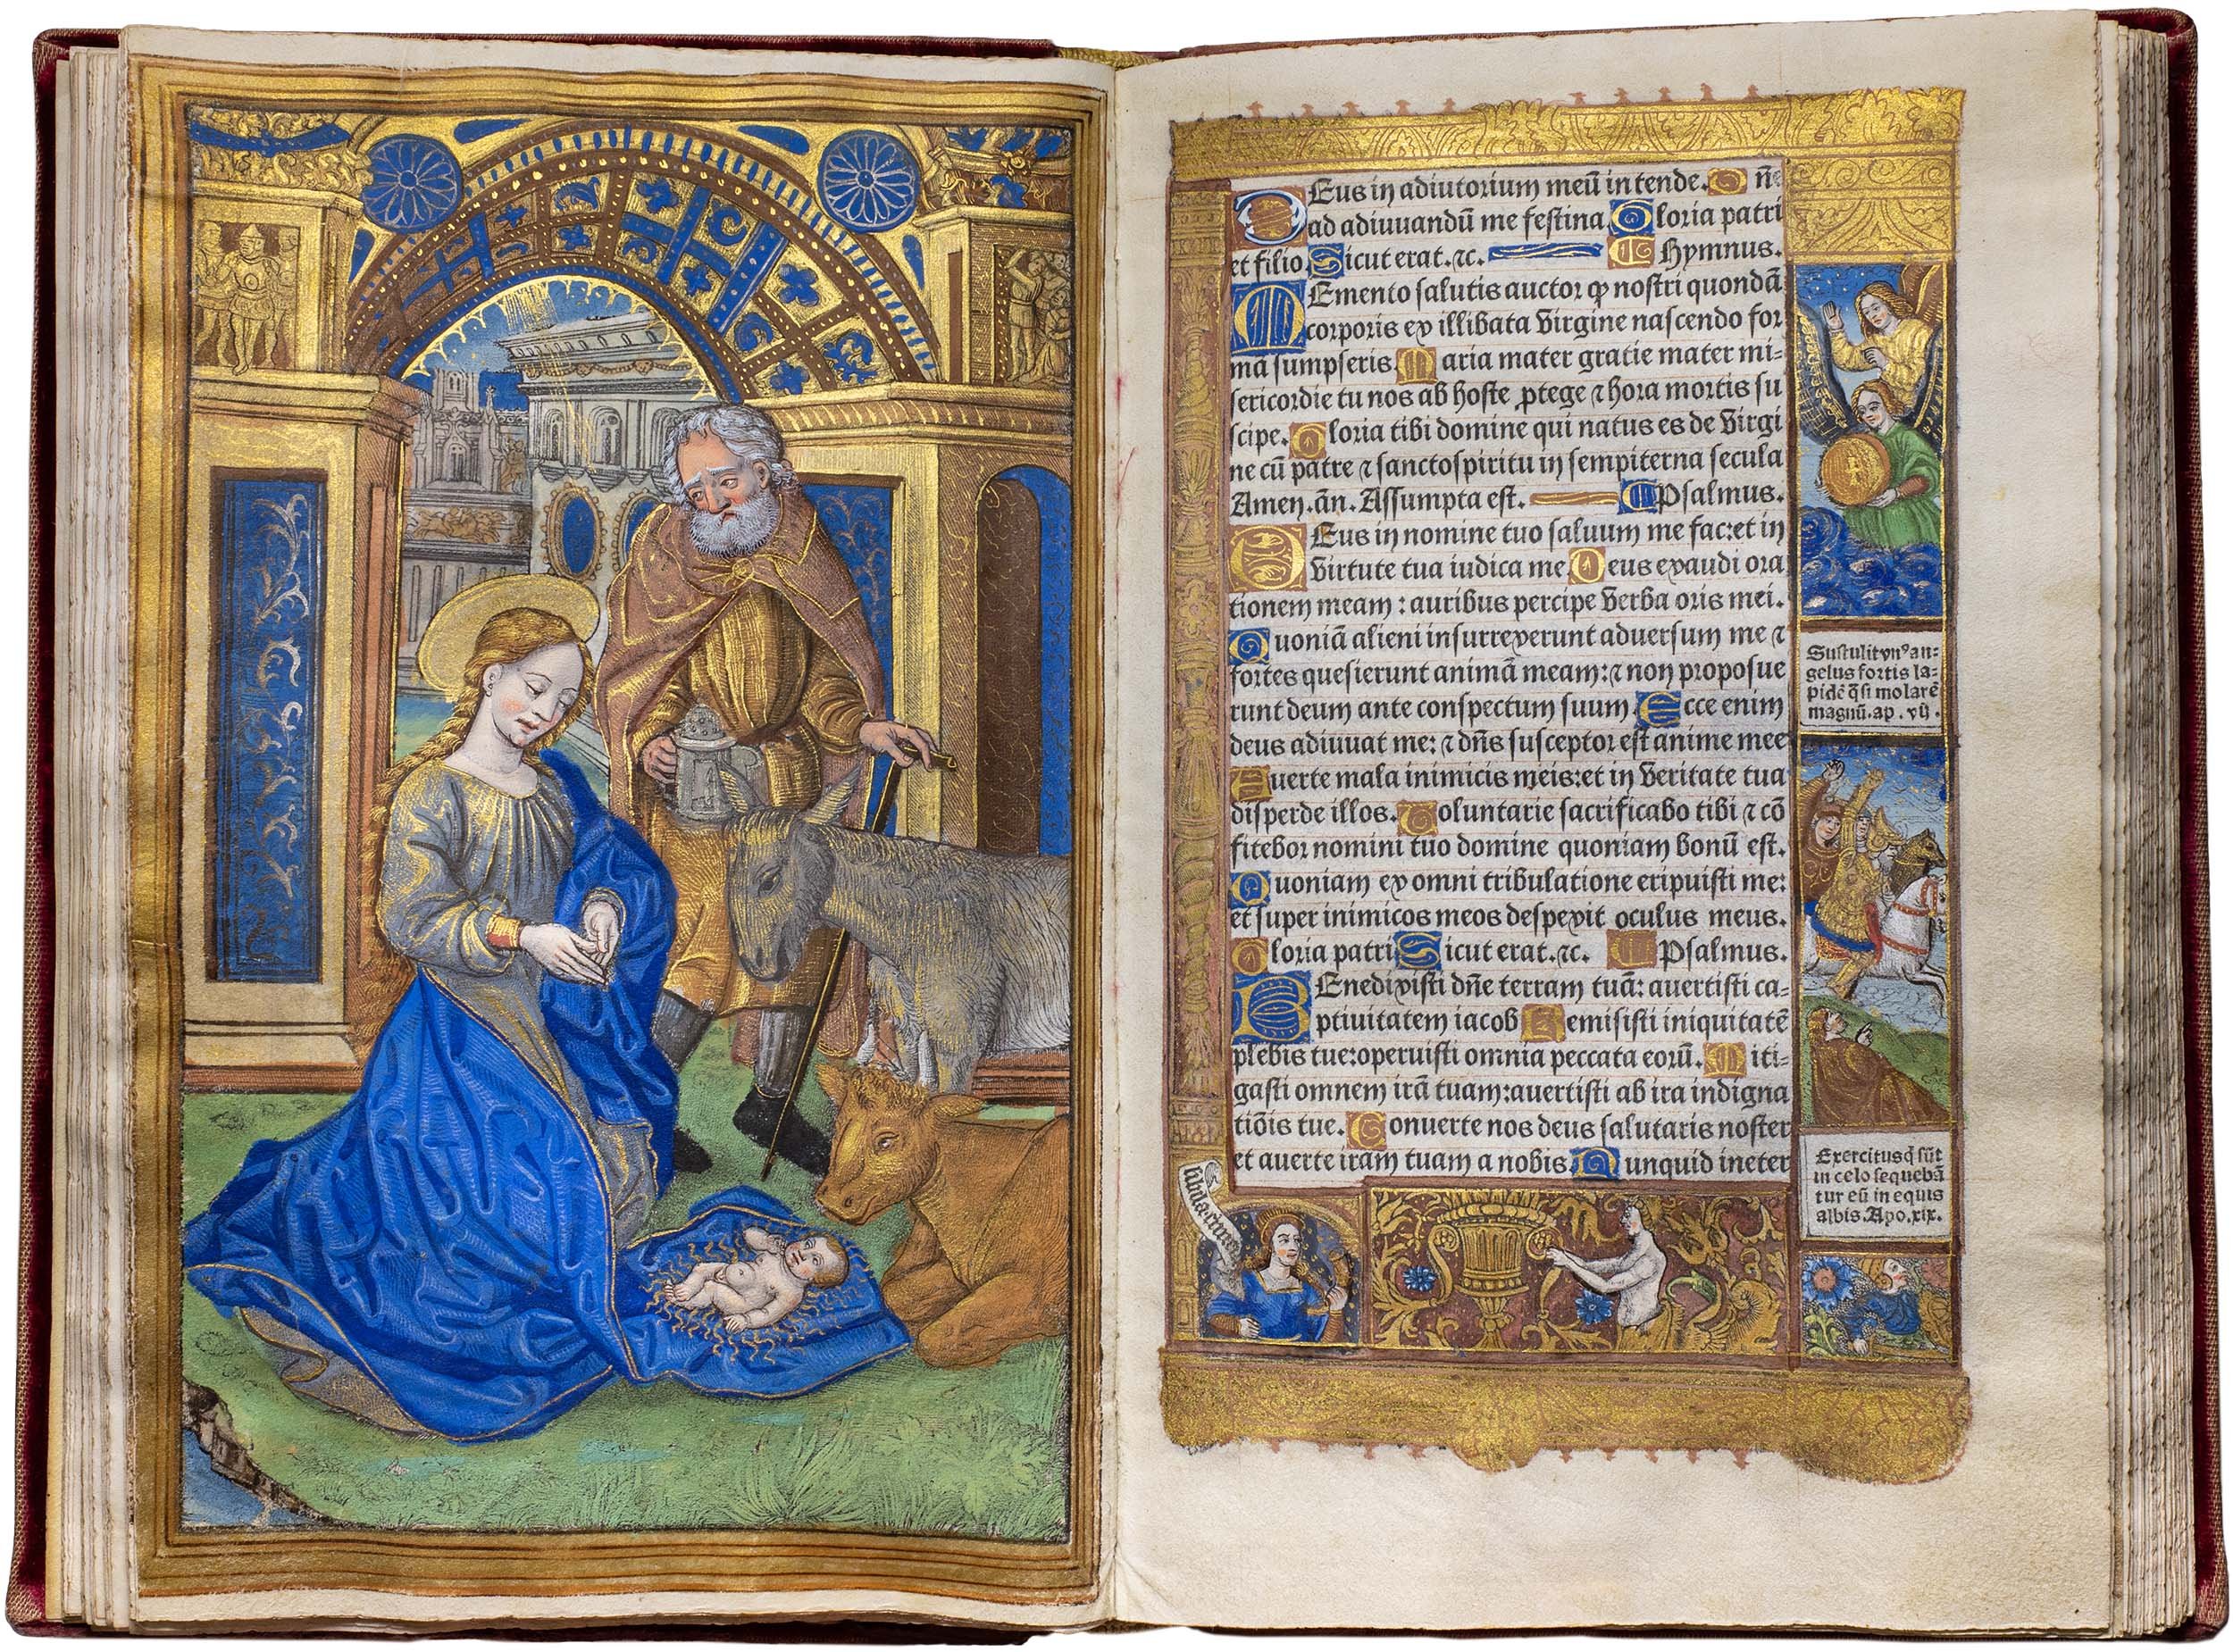 Deus in adiutorium meū intende. Dn̄e
ad adiuuandū me festina. Gloria patri
et filio. Sicut erat. ⁊c. Hymnus.
Memento salutis auctor ꝙ nostri quondā
corporis ex illibata Virgine nascendo for
mā sumpseris. Maria mater gratie mater mi=
sericordie tu nos ab hoste ꝓtege ⁊ hora mortis su
scipe. Gloria tibi domine qui natus es de Virgi
ne cū patre ⁊ sancto spiritu in sempiterna secula
Amen. añ. Assumpta est. Psalmus.
Deus in nomine tuo saluum me fac: et in
Virtute tua iudica me. Deus exaudi ora
tionem meam: auribus percipe Verba oris mei.
Quoniā alieni insurrexerunt aduersum me ⁊
fortes quesierunt animā meam: ⁊ non proposue
runt deum ante conspectum suum. Ecce enim
deus adiuuat me: ⁊ dn̄s susceptor est anime mee
Auerte mala inimicis meis: et in Veritate tua
disperde illos. Voluntarie sacrificabo tibi ⁊ cō
fitebor nomini tuo domine quoniam bonū est.
Quoniam ex omni tribulatione eripuisti me:
et super inimicos meos despexit oculus meus.
Gloria patri. Sicut erat. ⁊c. Psalmus.
Benedixisti dn̄e terram tuā: auertisti ca=
ptiuitatem iacob. Remisisti iniquitatē
plebis tue: operuisti omnia peccata eorū. Miti=
gasti omnem irā tuam: auertisti ab ira indigna
tiōis tue. Conuerte nos deus salutaris noster
et auerte iram tuam a nobis. Nunquid in eter
Sustulit vnꝰ an=
gelus fortis la=
pidē q̄si molarē
magnū. ap. vij.
Exercitus q̄ sūt
in celo sequebā
tur eū in equis
albis. Apo. xix.